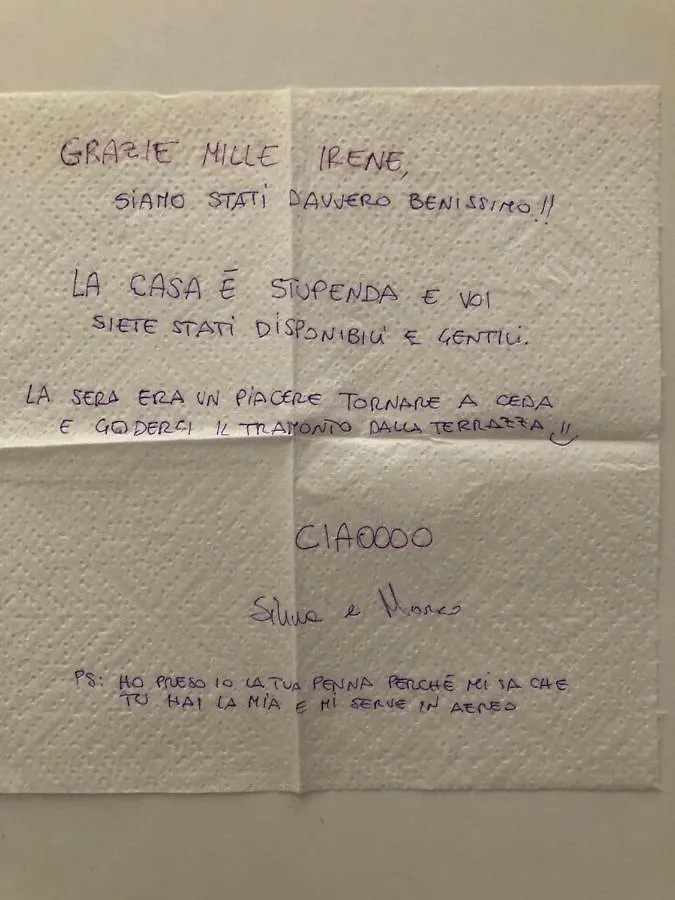 GRAZIE MILLE IRENE,
SIAMO STATI DAVVERO BENISSIMO!!
LA CASA È STUPENDA E VOI
SIETE STATI DISPONIBILI E GENTILI.
LA SERA ERA UN PIACERE TORNARE A CEDA
E GODERCI IL TRAMONTO DALLA TERRAZZA!!
CIAOOOO
Silvia e Marco
PS: HO PRESO IO LA TUA PENNA PERCHÉ MI SA CHE
TU HAI LA MIA E MI SERVE IN AEREO